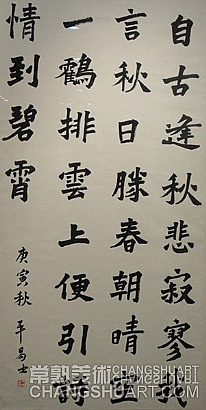 自古逢秋悲寂寥我
言秋日勝春朝晴空
一鶴排雲上便引詩
情到碧霄
庚寅秋 平昌士
常熟美術
CHANGSHUART